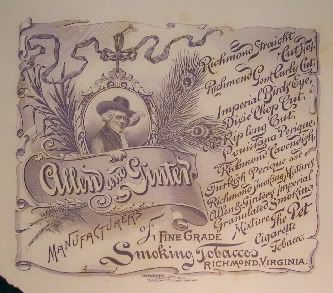 Allen and Ginter
Manufacturers
of Fine Grade
Smoking Tobaccos
Richmond, Virginia.
Richmond Straight
Cut No. 1.
Richmond Gem Curly Cut.
Imperial Birds Eye.
Dixie Chop Cut.
Rip Long Cut.
Louisiana Perique.
Richmond Cavendish.
Turkish Perique and
Richmond Smoking Mixtures
Allen & Ginters Imperial
Granulated Smoking
Mixture The Pet
Cigarette
Tobacco.